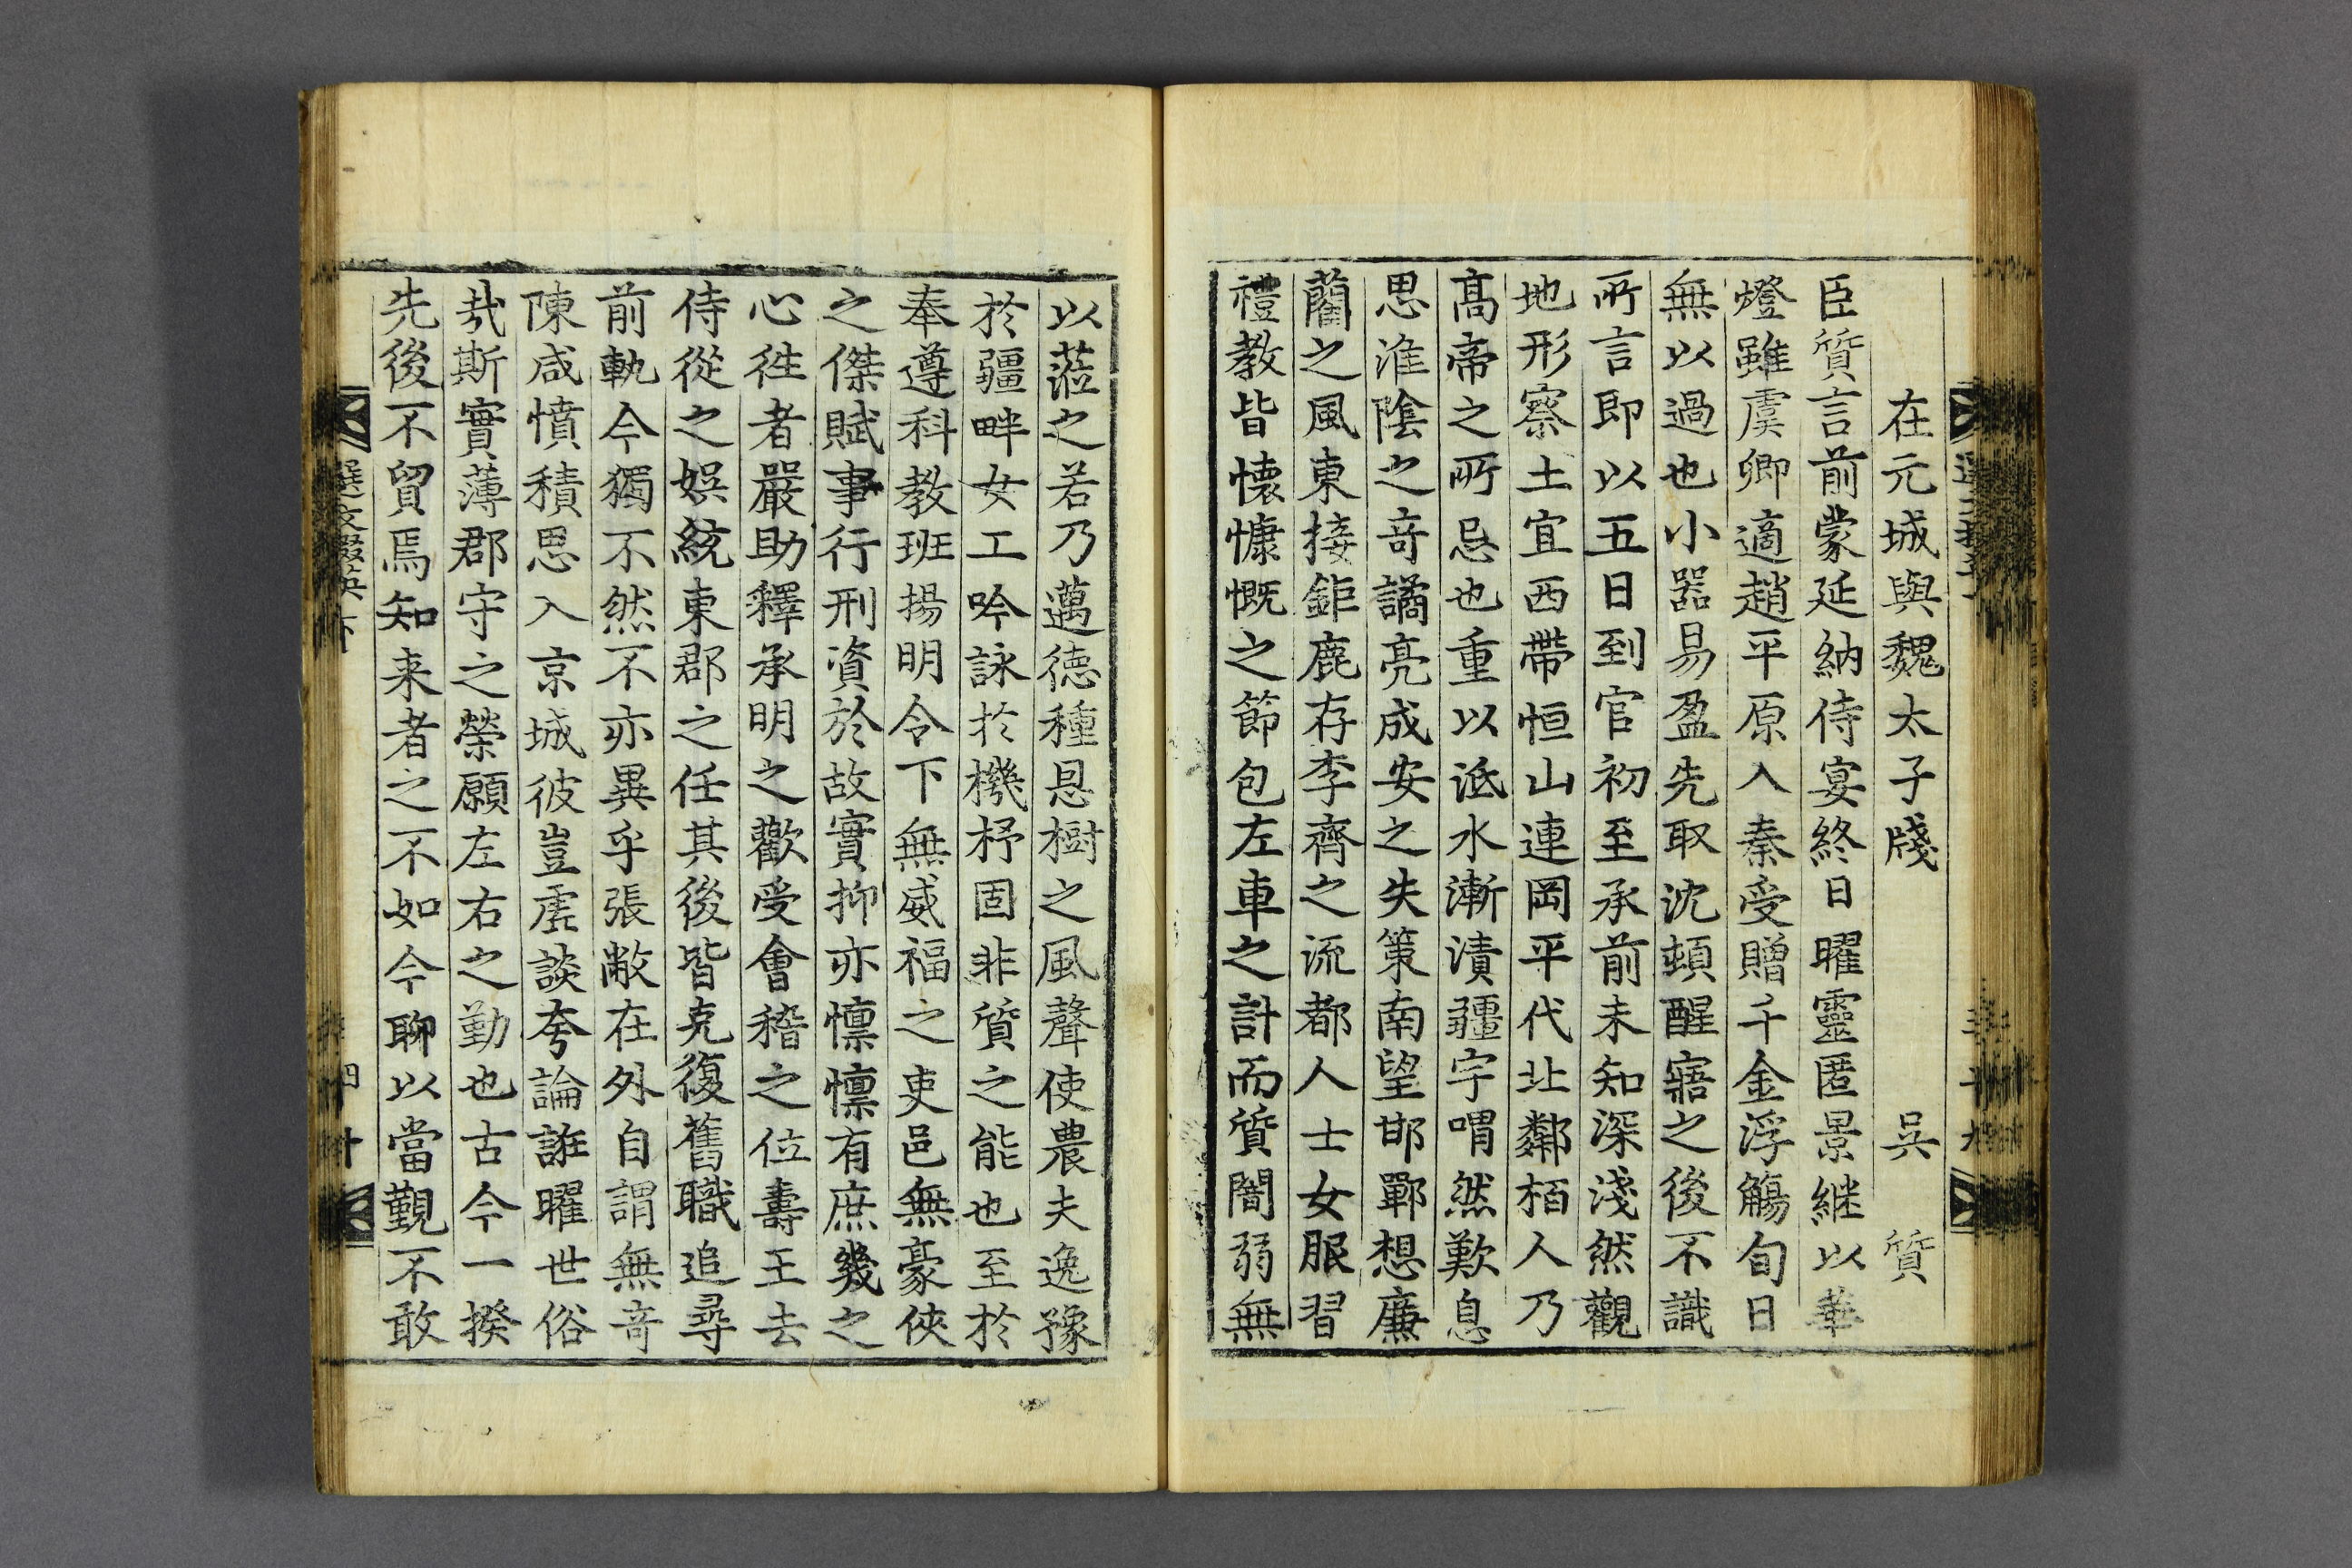 在元城與魏太子牋 吳質
臣質言前蒙延納侍宴終日曜靈匿景継以華
燈雖虞卿適趙平原入秦受贈千金浮觴旬日
無以過也小器易盈先取沈頓醒寤之後不識
所言即以五日到官初至承前未知深淺然觀
地形察土宜西帶恒山連岡平代北鄰栢人乃
高帝之所忌也重以泜水漸漬疆宇喟然歎息
思淮陰之竒譎亮成安之失策南望邯鄲想廉
藺之風東接鉅鹿存李齊之流都人士女服習
禮教皆懐慷慨之節包左車之計而質闇弱無
以蒞之若乃邁徳種恩樹之風聲使農夫逸豫
於疆畔女工吟詠於機杼固非質之能也至於
奉遵科教班揚明令下無威福之吏邑無豪俠
之傑賦事行刑資於故實抑亦懍懍有庶幾之
心徃者嚴助釋承明之歡受會稽之位壽王去
侍從之娯統東郡之任其後皆克復舊職追尋
前軌今獨不然不亦異乎張敞在外自謂無竒
陳咸憤積思入京城彼豈虗談夸論誑曜世俗
㢤斯實薄郡守之榮願左右之勤也古今一揆
先後不貿焉知来者之不如今聊以當覲不敢
選文掇英下
四十